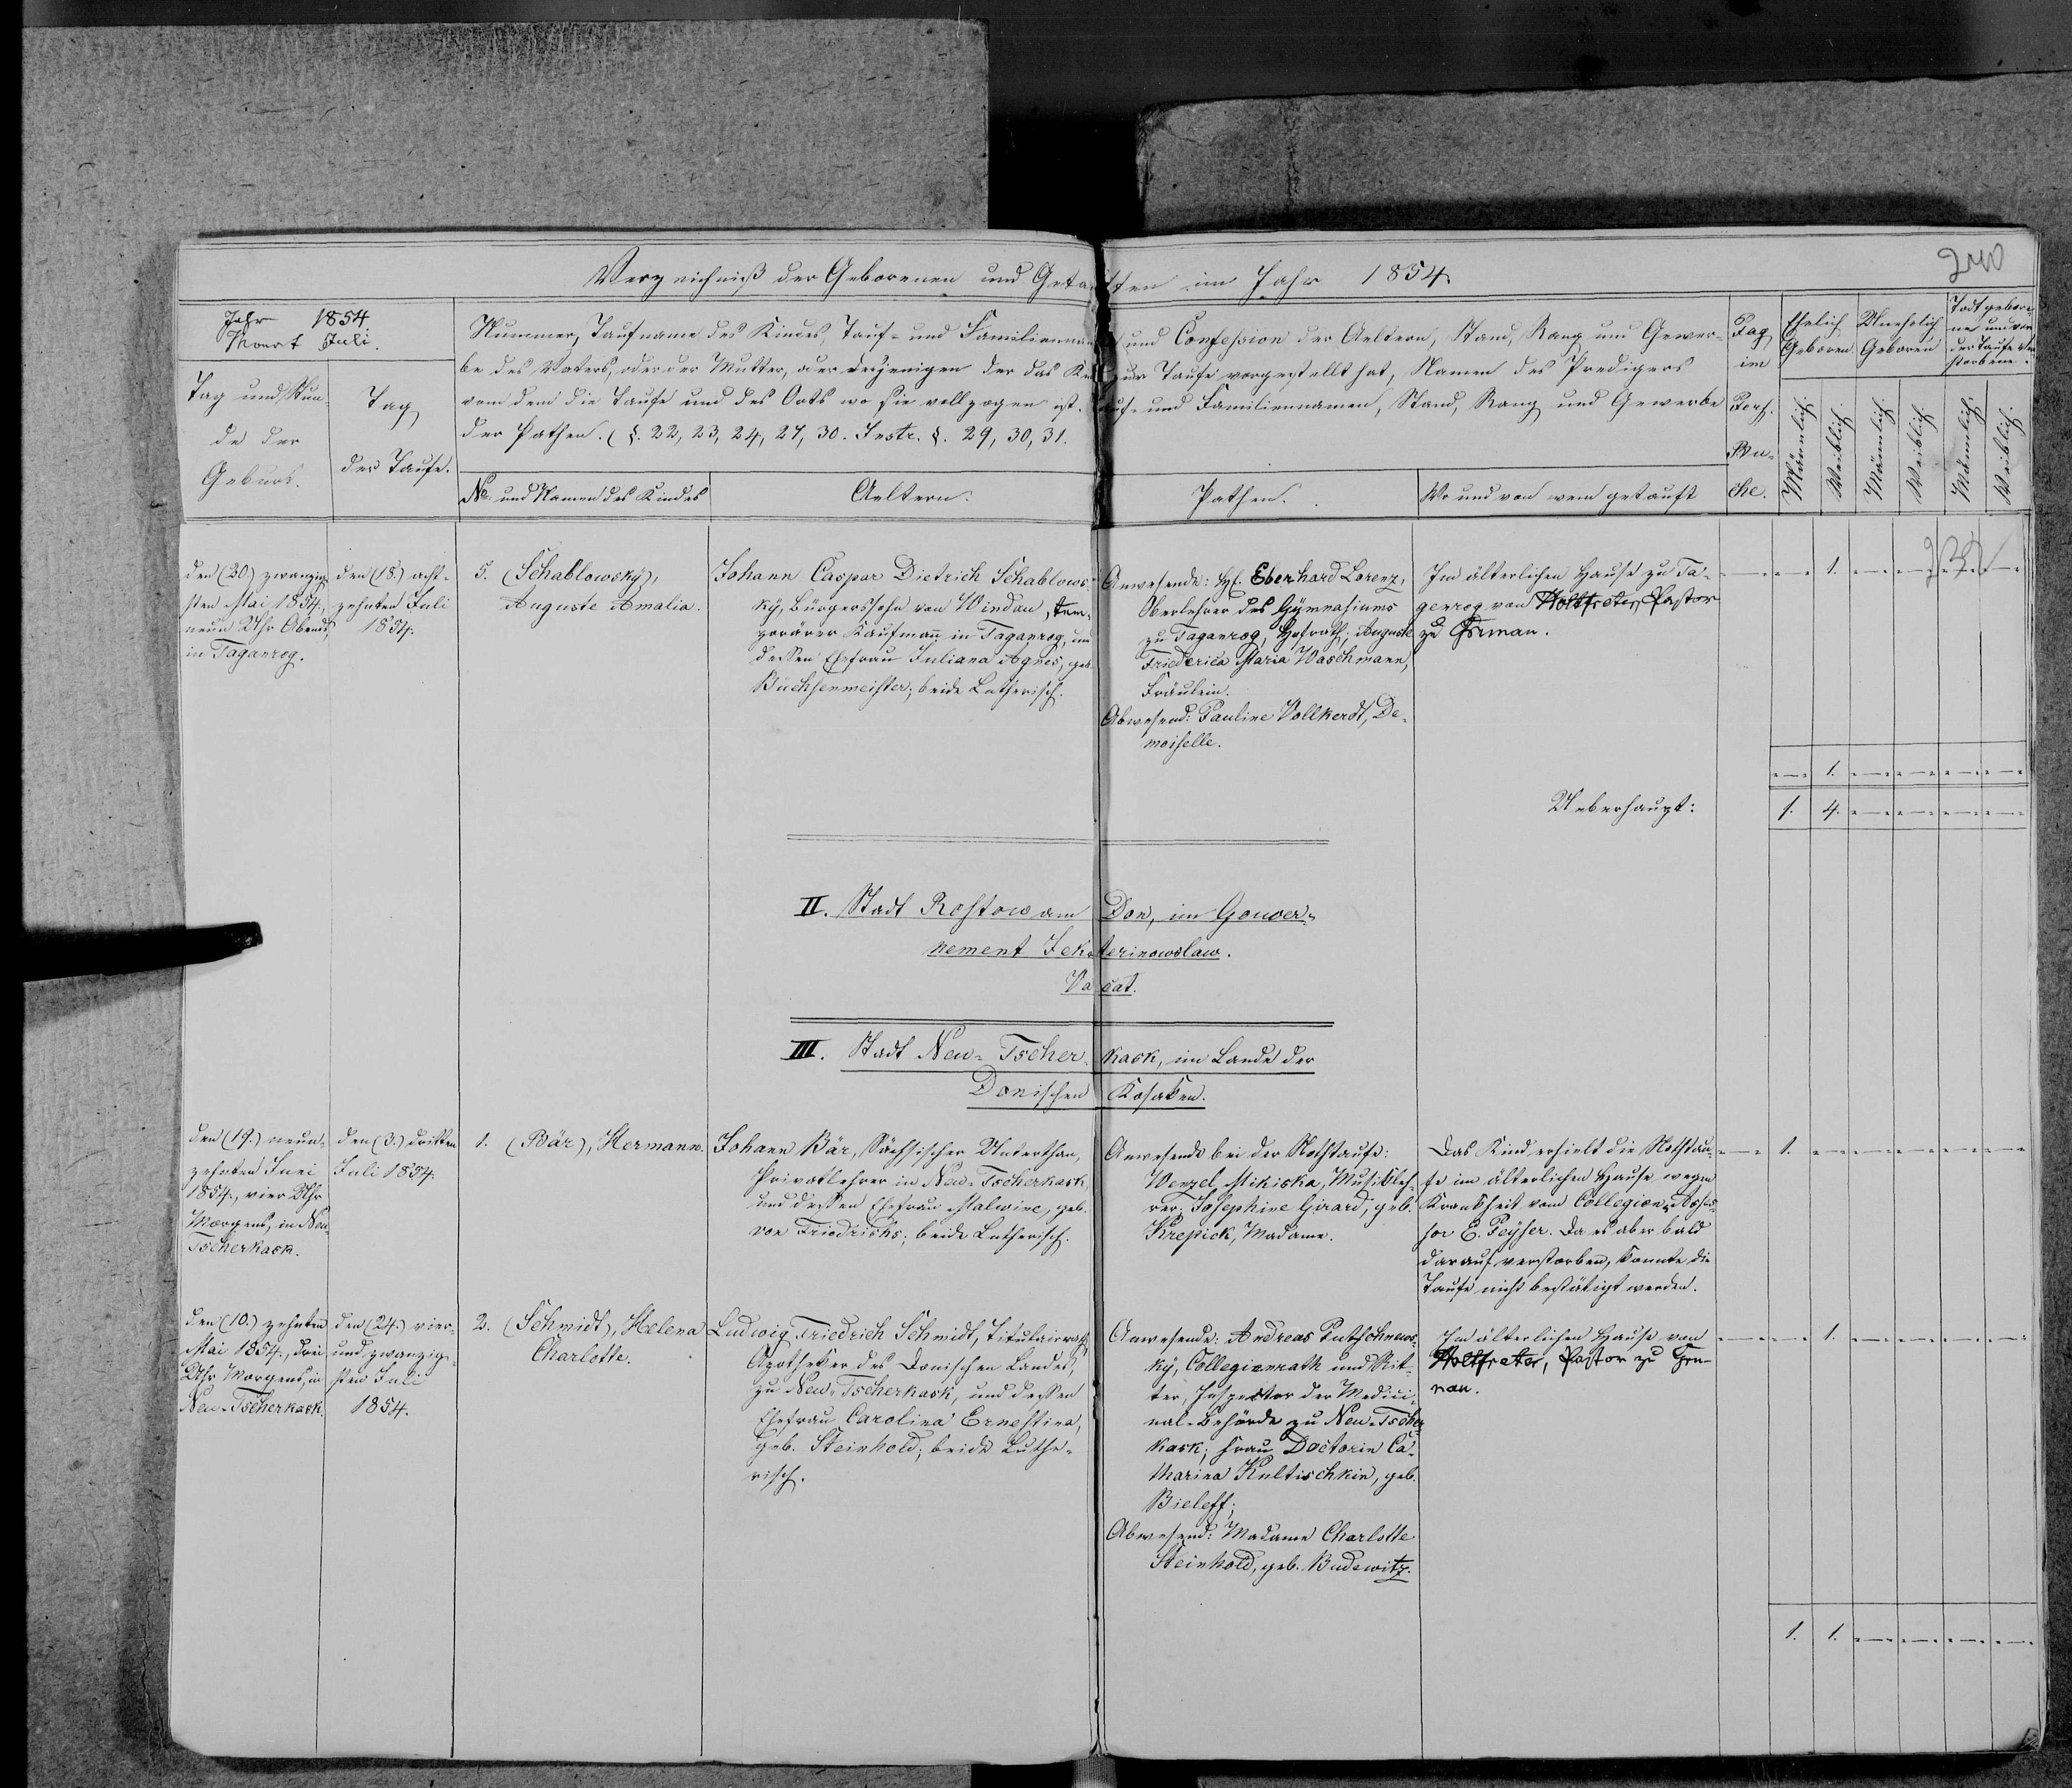 Verzeichniß der Geborenen und Getauften im Jahr 1854.
240
Jahr 1854
Monat Juli.
Tag und Stun-
de der
Geburt.
Tag
der Taufe.
Nummer, Taufname des Kindes, Tauf- und Familiennamen und Confession der Aeltern, Stand, Rang und Gewer-
be des Vaters, oder der Mutter, oder derjenigen der das Kind zur Taufe vorgestellt hat, Namen des Predigers
von dem die Taufe und des Orts wo sie vollzogen ist. Tauf- und Familiennamen, Stand, Rang und Gewerbe
der Pathen. (§. 22, 23, 24, 27, 30. Instr. §. 29, 30, 31.
№ und Namen des Kindes
Aeltern.
Pathen.
Wo und von wem getauft
Tag
im
Persf.
Bu-
che.
Ehelich
Geboren
Unehelich
Geboren
Todtgebore-
ne und vor
der Taufe ver-
storbene.
Männlich.
Weiblich.
Männlich.
Weiblich.
Männlich.
Weiblich.
den (20.) zwanzig-
sten Mai 1854.,
neun Uhr Abends,
in Taganrog.
den (18.) acht-
zehnten Juli
1854.
5. (Schablowsky),
Auguste Amalia.
Johann Caspar Dietrich Schablows-
ky, Bürgerssohn von Windau, tem-
porärer Kaufmann in Taganrog, und
dessen Ehefrau Juliana Agnes, geb.
Büchsenmeister; beide Lutherisch.
Anwesende: H. Eberhard Lorenz,
Oberlehrer des Gymnasiums
zu Taganrog, Hofrath; Auguste
Friederica Maria Waschmann,
Fräulein.
Abwesend: Pauline Vollkerdt, De-
moiselle.
Im älterlichen Hause zu Ta-
ganrog von Holtfreter, Pastor
zu Grunau.
1.
1.
Ueberhaupt:
1. 4.
II. Stadt Rostow am Don, im Gouver-
nement Jekaterinowslaw.
Vacat.
III. Stadt Neu-Tscherkask, im Lande der
Donischen Kosaken.
den (19.) neun-
zehnten Juni
1854., vier Uhr
Morgens, in Neu-
Tscherkask.
den (3.) dritten
Juli 1854.
1. (Bär), Hermann.
Johann Bär, Sächsischer Unterthan,
Privatlehrer in Neu-Tscherkask,
und dessen Ehefrau Malwine, geb.
von Friedrichs; beide Lutherisch.
Anwesende bei der Nothtaufe:
Wenzel Mikiska, Musikleh-
rer; Josephine Girard, geb.
Krepick, Madame.
Das Kind erhielt die Nothtau-
fe im älterlichen Hause wegen
Krankheit vom Collegien-Asses-
sor E. Peyser. Da es aber bald
darauf verstorben, konnte die
Taufe nicht bestätigt werden.
1.
den (10.) zehnten
Mai 1854., drei
Uhr Morgens, in
Neu-Tscherkask.
den (24.) vier-
und zwanzig-
sten Juli
1854.
2. (Schmidt), Helena
Charlotte.
Ludwig Friedrich Schmidt, Titulairrath,
Apotheker des Donischen Landes,
zu Neu-Tscherkask, und dessen
Ehefrau Carolina Ernestina,
geb. Steinhold; beide Luthe-
risch.
Anwesende: Andreas Putschnews-
ky, Collegienrath und Rit-
ter, Inspector der Medici-
nal-Behörde zu Neu-Tscher-
kask; Frau Doctorin Ca-
tharina Kultischkin, geb.
Bieleff;
Abwesend: Madame Charlotte
Steinhold, geb. Budewitz.
Im älterlichen Hause von
Holtfreter, Pastor zu Gru-
nau.
1.
1. 1.